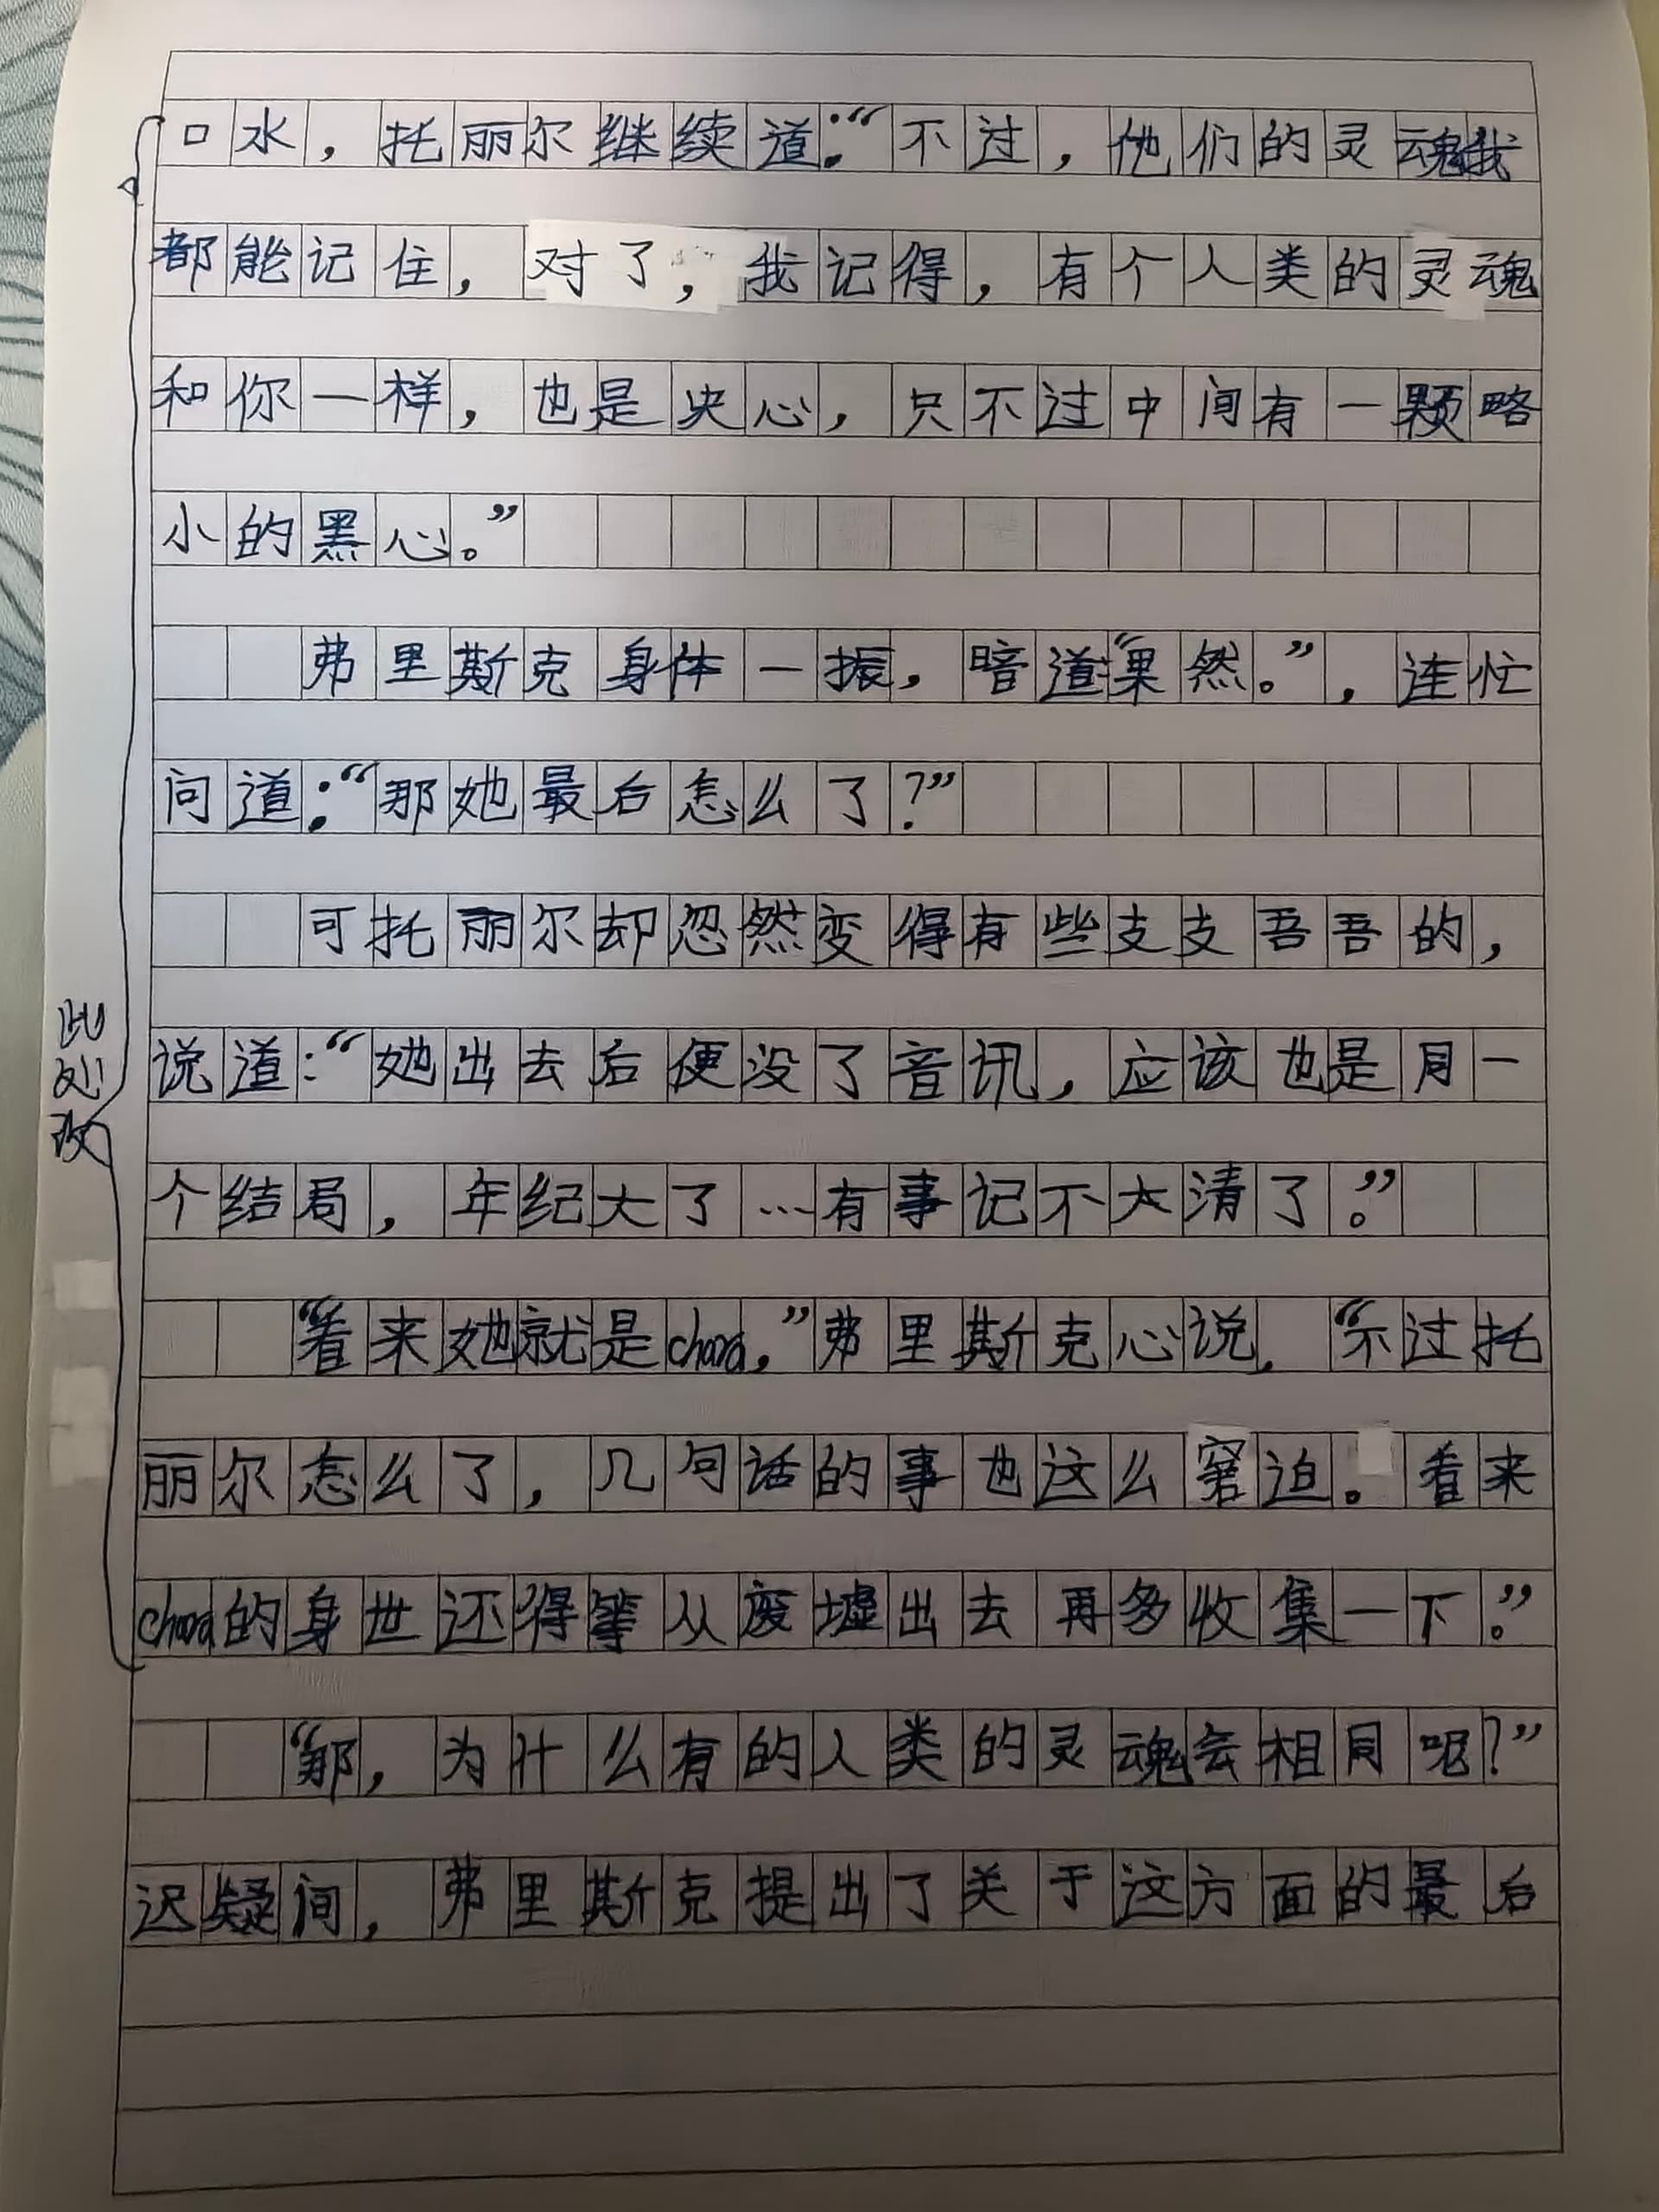 口水，托丽尔继续道：“不过，他们的灵魂我
都能记住，对了，我记得，有个人类的灵魂
和你一样，也是决心，只不过中间有一颗略
小的黑心。”
弗里斯克身体一振，暗道：“果然。”，连忙
问道：“那她最后怎么了？”
可托丽尔却忽然变得有些支支吾吾的，
说道：“她出去后便没了音讯，应该也是同一
个结局，年纪大了…有事记不太清了。”
“看来她就是chara，”弗里斯克心说，“不过托
丽尔怎么了，几句话的事也这么窘迫。看来
chara的身世还得等从废墟出去再多收集一下。”
“那，为什么有的人类的灵魂会相同呢？”
迟疑间，弗里斯克提出了关于这方面的最后
此处改